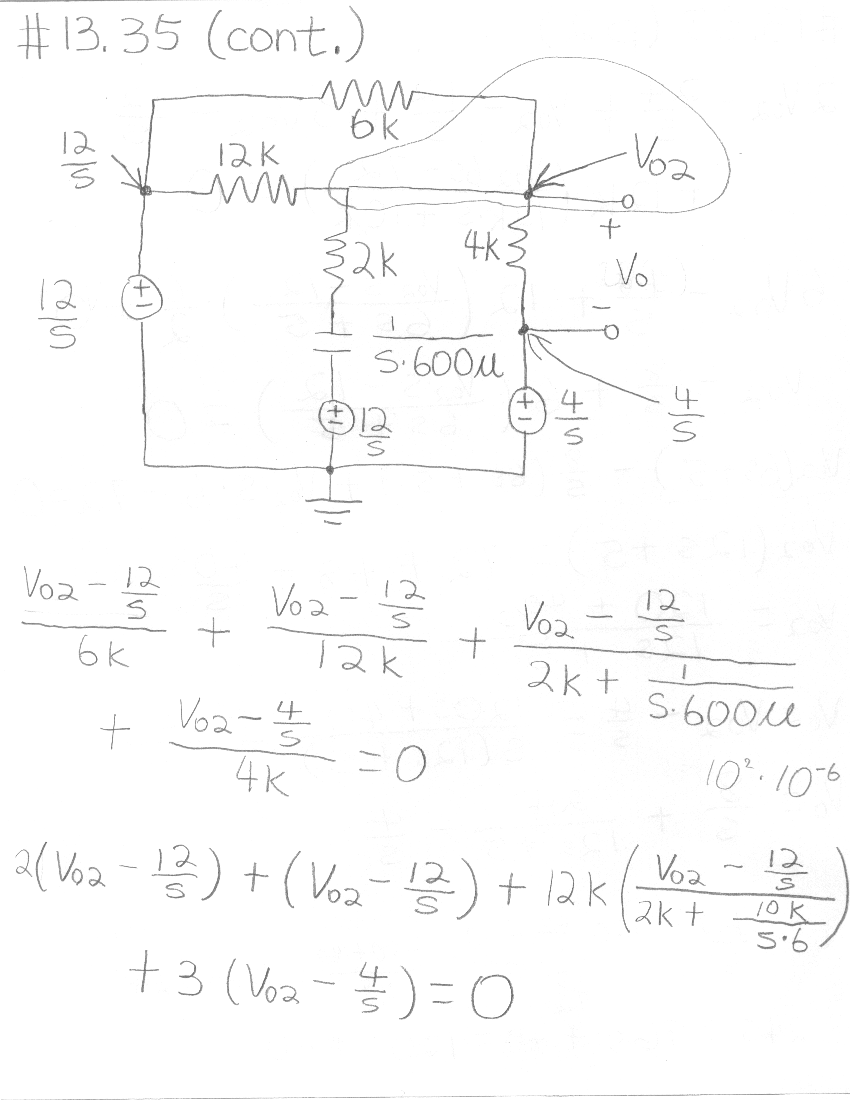 #13.35 (cont.)
6k
12/S
12k
V02
+
2k
4k
Vo
12/S
-
1/(S·600μ)
12/S
4/S
4/S
(V02 - 12/S)/6k + (V02 - 12/S)/12k + (V02 - 12/S)/(2k + 1/(S·600μ))
+ (V02 - 4/S)/4k = 0
10²·10⁻⁶
2(V02 - 12/S) + (V02 - 12/S) + 12k((V02 - 12/S)/(2k + 10k/(S·6)))
+ 3(V02 - 4/S) = 0